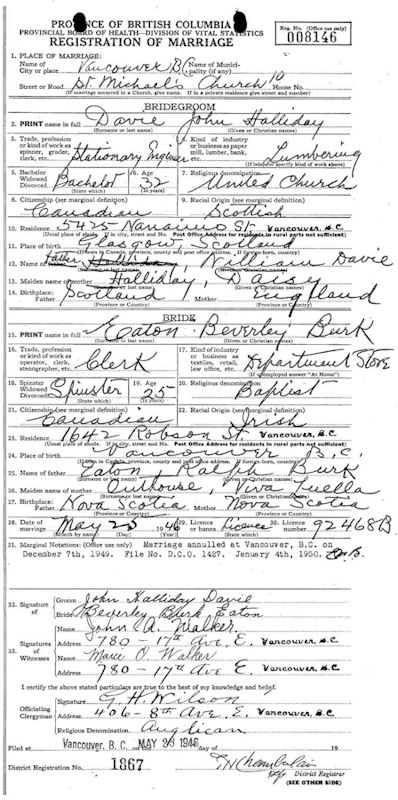 PROVINCE OF BRITISH COLUMBIA
PROVINCIAL BOARD OF HEALTH—DIVISION OF VITAL STATISTICS
REGISTRATION OF MARRIAGE
Reg. No. (Office use only)
008146
1. PLACE OF MARRIAGE:
City or place Vancouver B.C. Name of Municipality (if any)
Street or Road St. Michael's Church House No.
(If marriage occurred in a Church, give name. If in a private residence give street and number)
BRIDEGROOM
2. PRINT name in full Davie John Halliday
(Surname or last name) (Given or Christian names)
3. Trade, profession or kind of work as spinner, grader, clerk, etc. Stationary Engineer Kind of industry or business as paper mill, lumber, bank, etc. Lumbering
5. Bachelor Widowed Divorced Bachelor (State which) 6. Age 32 7. Religious denomination United Church
8. Citizenship (see marginal definition) Canadian 9. Racial Origin (see marginal definition) Scottish
10. Residence 5425 Nanaimo St. Vancouver, B.C.
(Usual place of abode. If in city, street and number. Post Office Address for residents in rural parts not sufficient)
11. Place of birth Glasgow, Scotland
12. Name of father William Davie
13. Maiden name of mother Halliday, Daisy
14. Birthplace: Father Scotland Mother England
(Province or Country) (Province or Country)
BRIDE
15. PRINT name in full Eaton Beverley Burk
16. Trade, profession or kind of work as operator, clerk, stenographer, etc. Clerk 17. Kind of industry or business as textiles, retail, law office, etc. Department Store
(If unemployed answer "At Home")
18. Spinster Widowed Divorced Spinster (State which) 19. Age 25 20. Religious denomination Baptist
21. Citizenship (see marginal definition) Canadian 22. Racial Origin (see marginal definition) Irish
23. Residence 1642 Robson St. Vancouver, B.C.
(Usual place of abode. If in city, street and number. Post Office Address for residents in rural parts not sufficient)
24. Place of birth Vancouver B.C.
25. Name of father Eaton Ralph Burk
26. Maiden name of mother Outhouse, Viva Luella
27. Birthplace: Father Nova Scotia Mother Nova Scotia
(Province or Country) (Province or Country)
28. Date of marriage May 23 1946 29. Licence or banns Licence 30. Licence number 92468B
(Month by name) (Day)
31. Marginal Notations: (Office use only) Merriage annulled at Vancouver, B.C. on
December 7th, 1949. File No. D.C.O. 1427. January 4th, 1950.
32. Signature of Groom John Halliday Davie
Bride Beverley Burk Eaton
33. Signature of Witnesses Name John A. Walker
Address 780 - 17th Ave. E. Vancouver, B.C.
Name Marie O. Walker
Address 780 - 17th Ave E. Vancouver, B.C.
I certify the above stated particulars are true to the best of my knowledge and belief.
Officiating Clergyman Signature G. H. Wilson
Address 406 - 8th Ave. E. Vancouver, B.C.
Religious Denomination Anglican
Filed at Vancouver, B.C. on MAY 23 1946 day of 19
District Registration No. 1867 Chamberlain
District Registrar
(SEE OTHER SIDE)